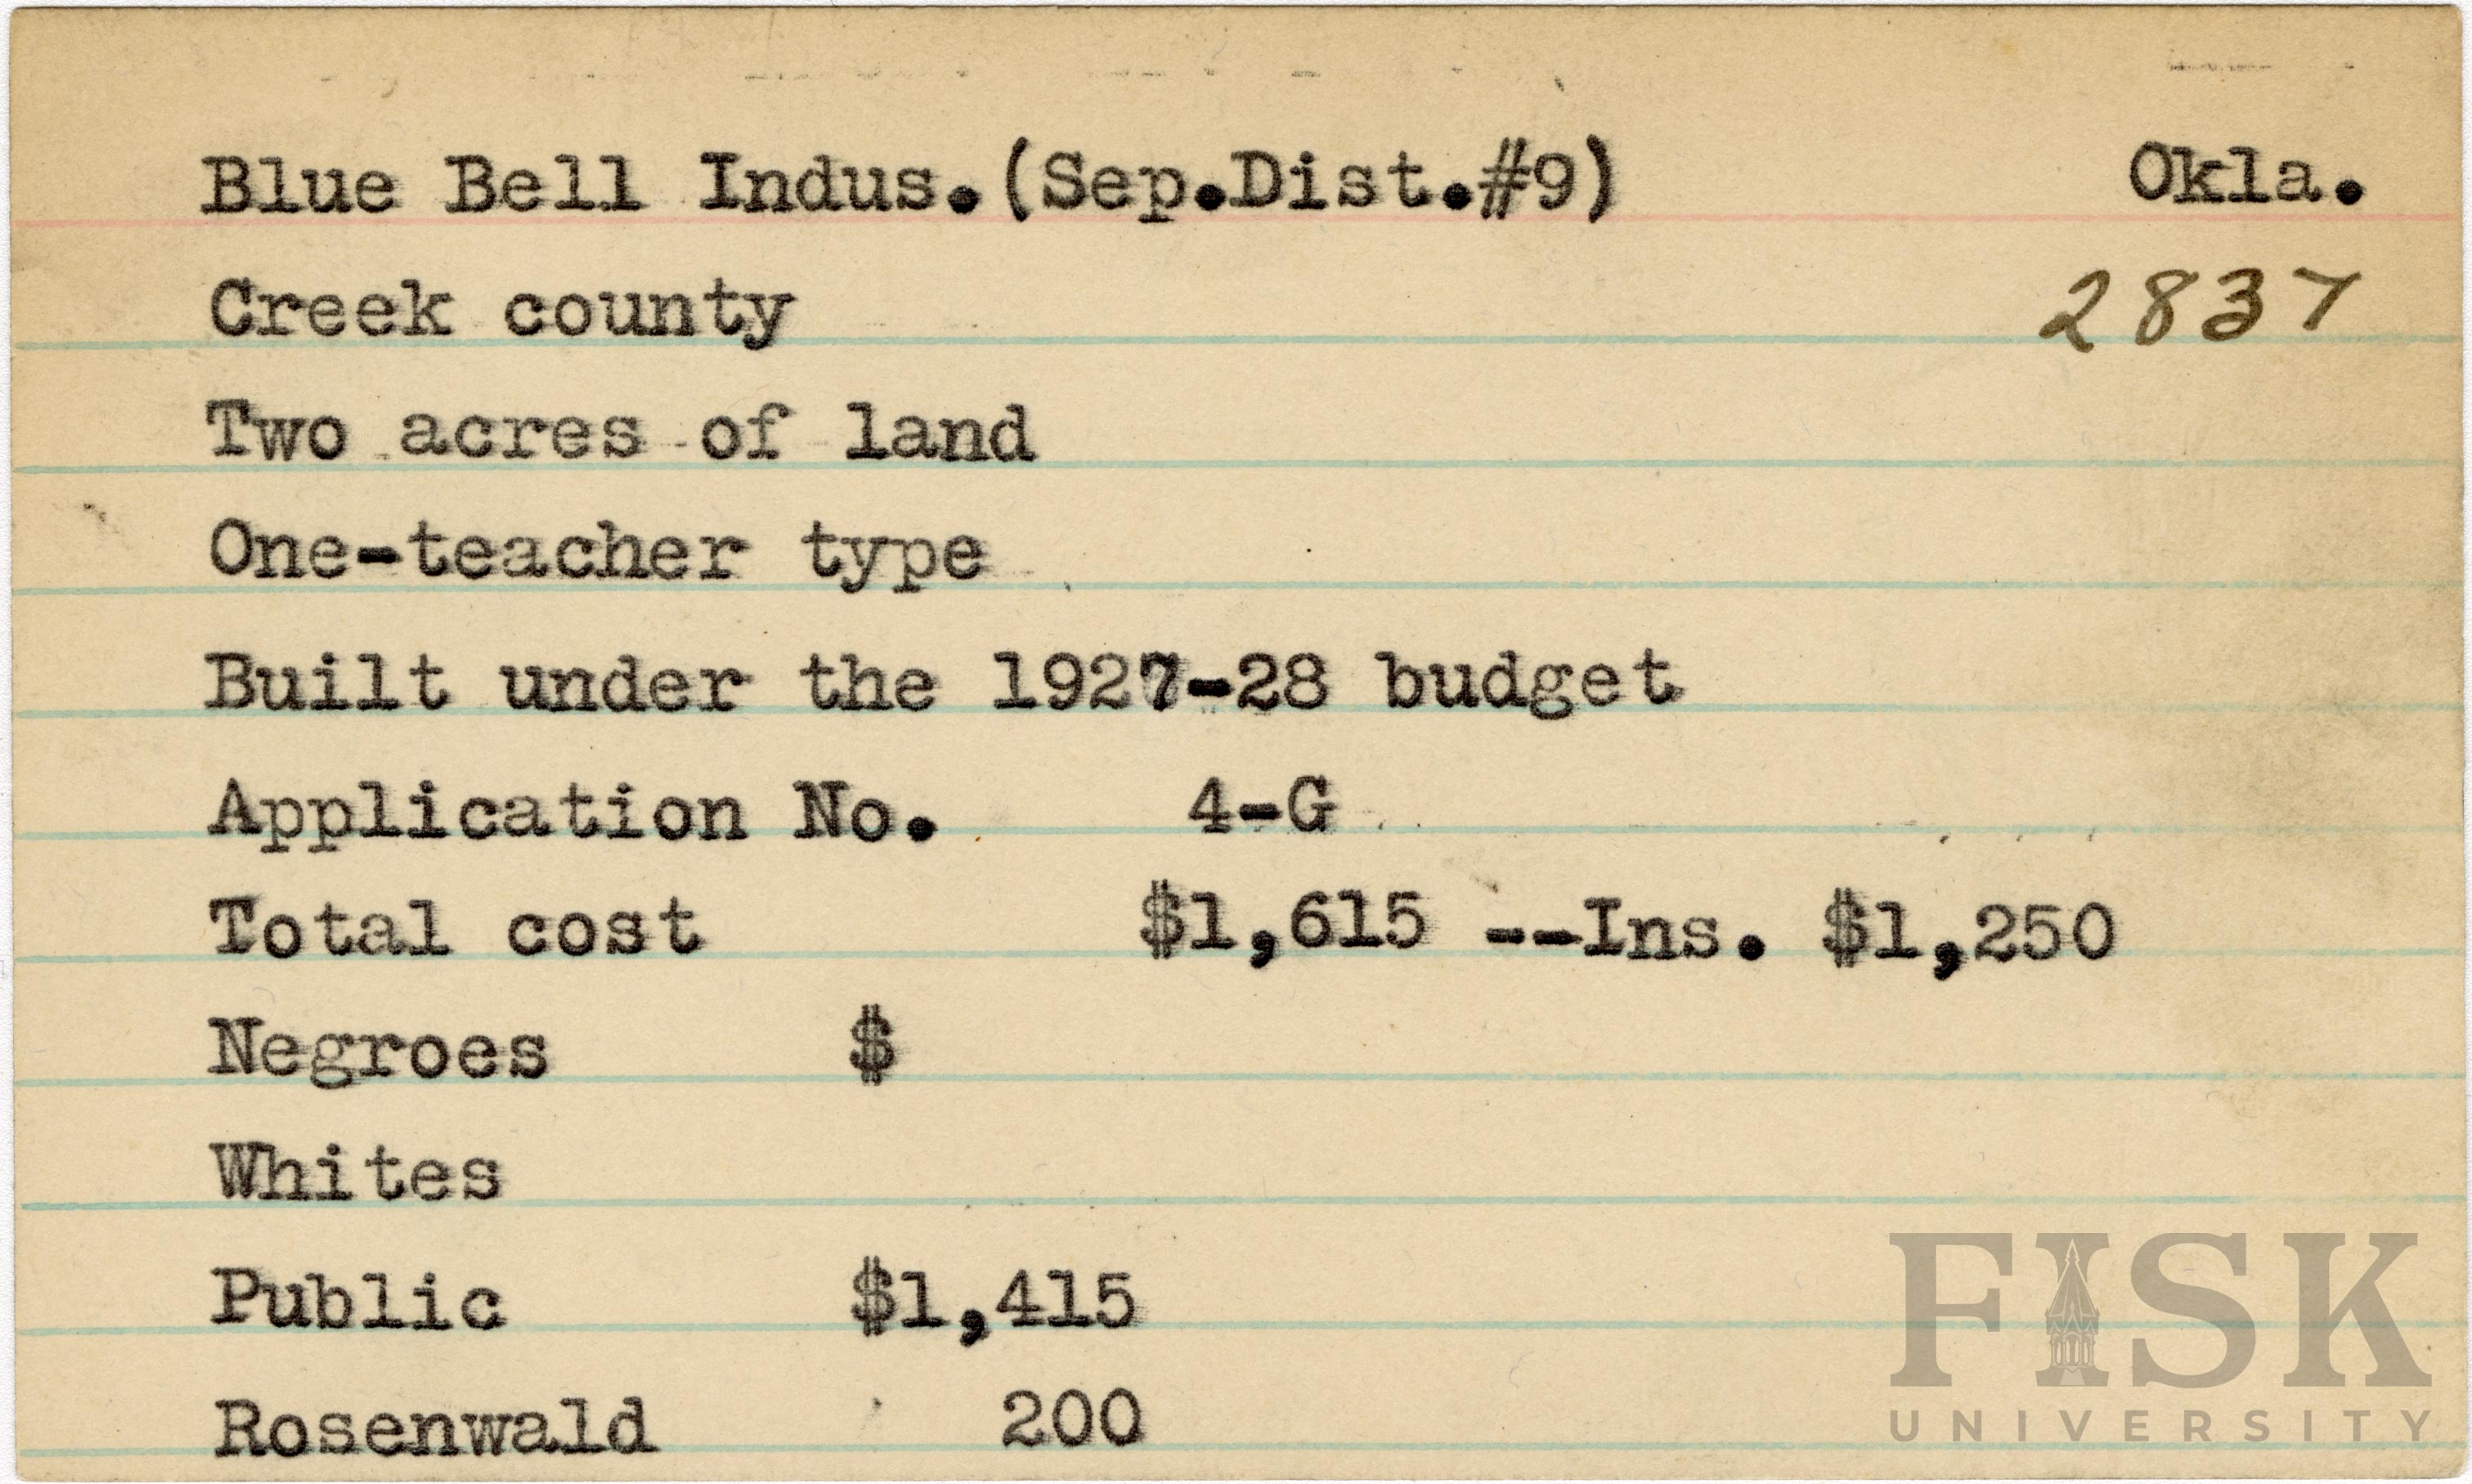 Blue Bell Indus.(Sep.Dist.#9) Okla.
Creek county 2837
Two acres of land
One-teacher type
Built under the 1927-28 budget
Application No. 4-G
Total cost $1,615 --Ins. $1,250
Negroes $
Whites
Public $1,415
Rosenwald 200
FISK
UNIVERSITY